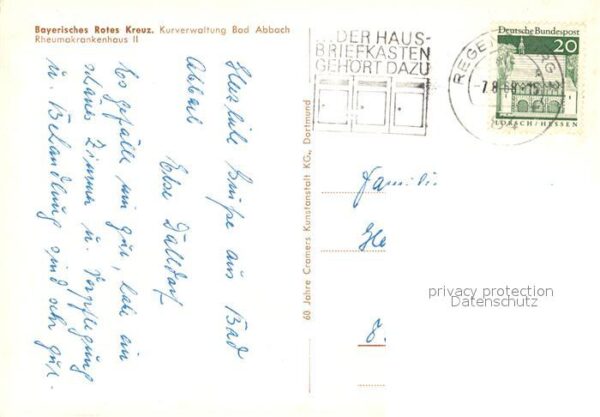 Bayerisches Rotes Kreuz. Kurverwaltung Bad Abbach
Rheumakrankenhaus II
...DER HAUS-
BRIEFKASTEN
GEHÖRT DAZU
-7.8.68-15
Deutsche Bundespost
20
LORSCH/HESSEN
60 Jahre Cramers Kunstanstalt KG., Dortmund
Herzliche Grüße aus Bad
Abbach
Else
Es gefällt mir gut, habe ein
schönes Zimmer u. Verpflegung
u. Behandlung sind sehr gut.
Familie
He
8.
privacy protection
Datenschutz